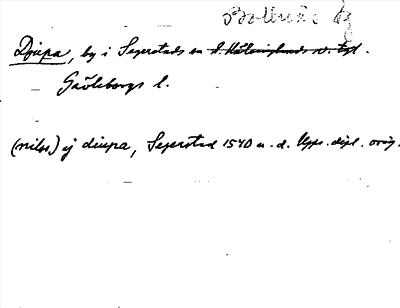 Bollnäs
Djupa, by i Segerstads sn S. Hälsinglands v. tgl.
Gävleborgs l.
(nils) ij diupa, Segerstad 1540 u. d. Upps. dipl. orig.